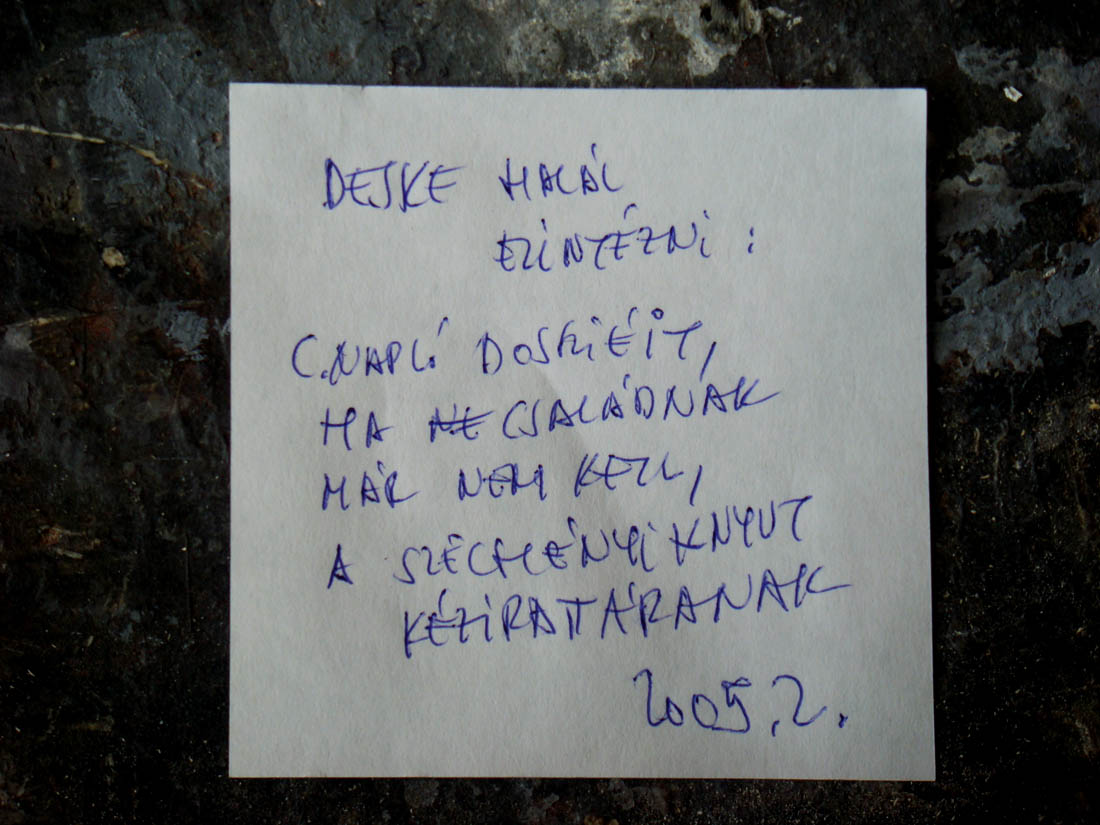 DESKE HALÁL
ELINTÉZNI :
C.NAPLÓ DOSSZIÉIT,
HA NE CSALÁDNAK
MÁR NEM KELL,
A SZÉCHÉNYI KNYVT
KÉZIRATTÁRANAK
2005.2.